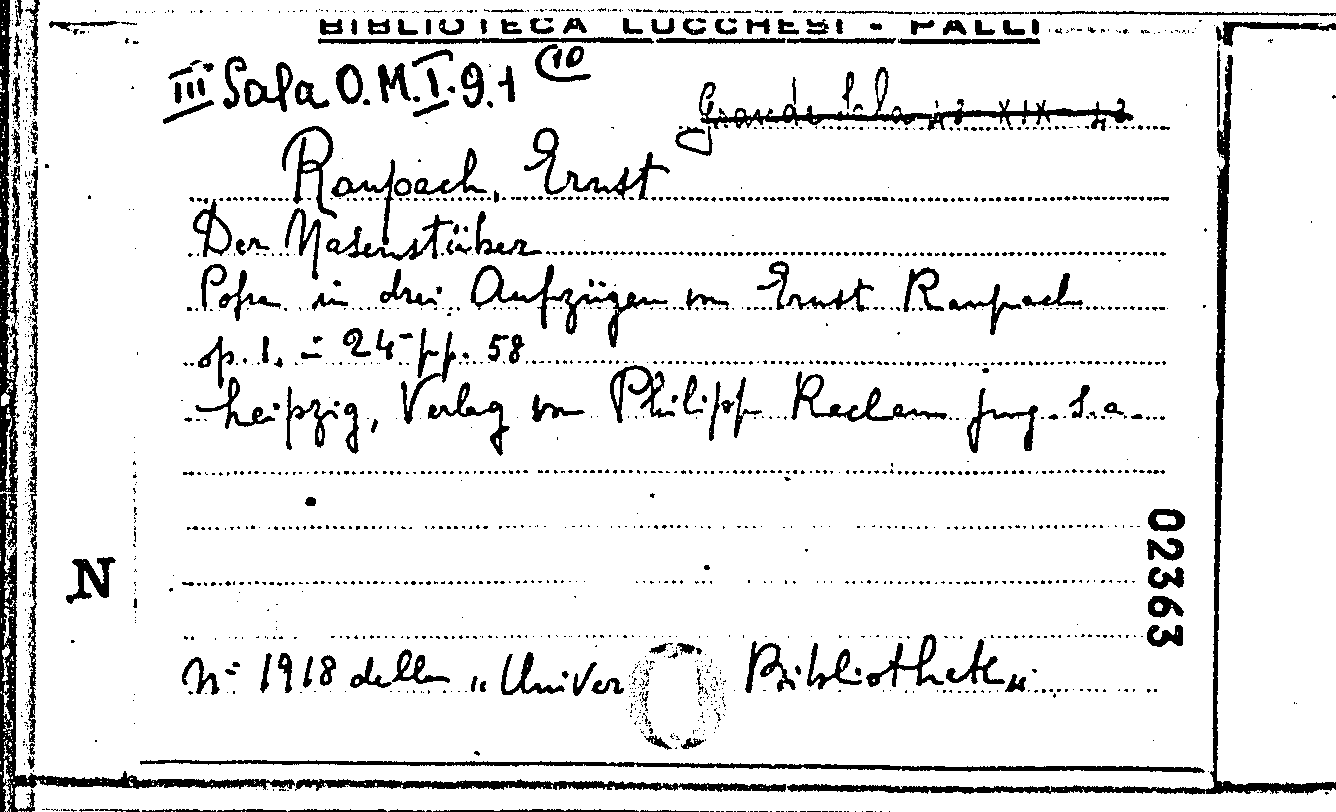 BIBLIOTECA LUCCHESI - PALLI
III Sala O.M.I.9.1 (10
Grande Sala 43 XIX 43
Raupach, Ernst
Der Nasenstüber
Posse in drei Aufzügen von Ernst Raupach
op. 1. in 24 pp. 58
Leipzig, Verlag von Philipp Reclam jung. s.a.
02363
N
N° 1918 della "Univer Bibliothek"